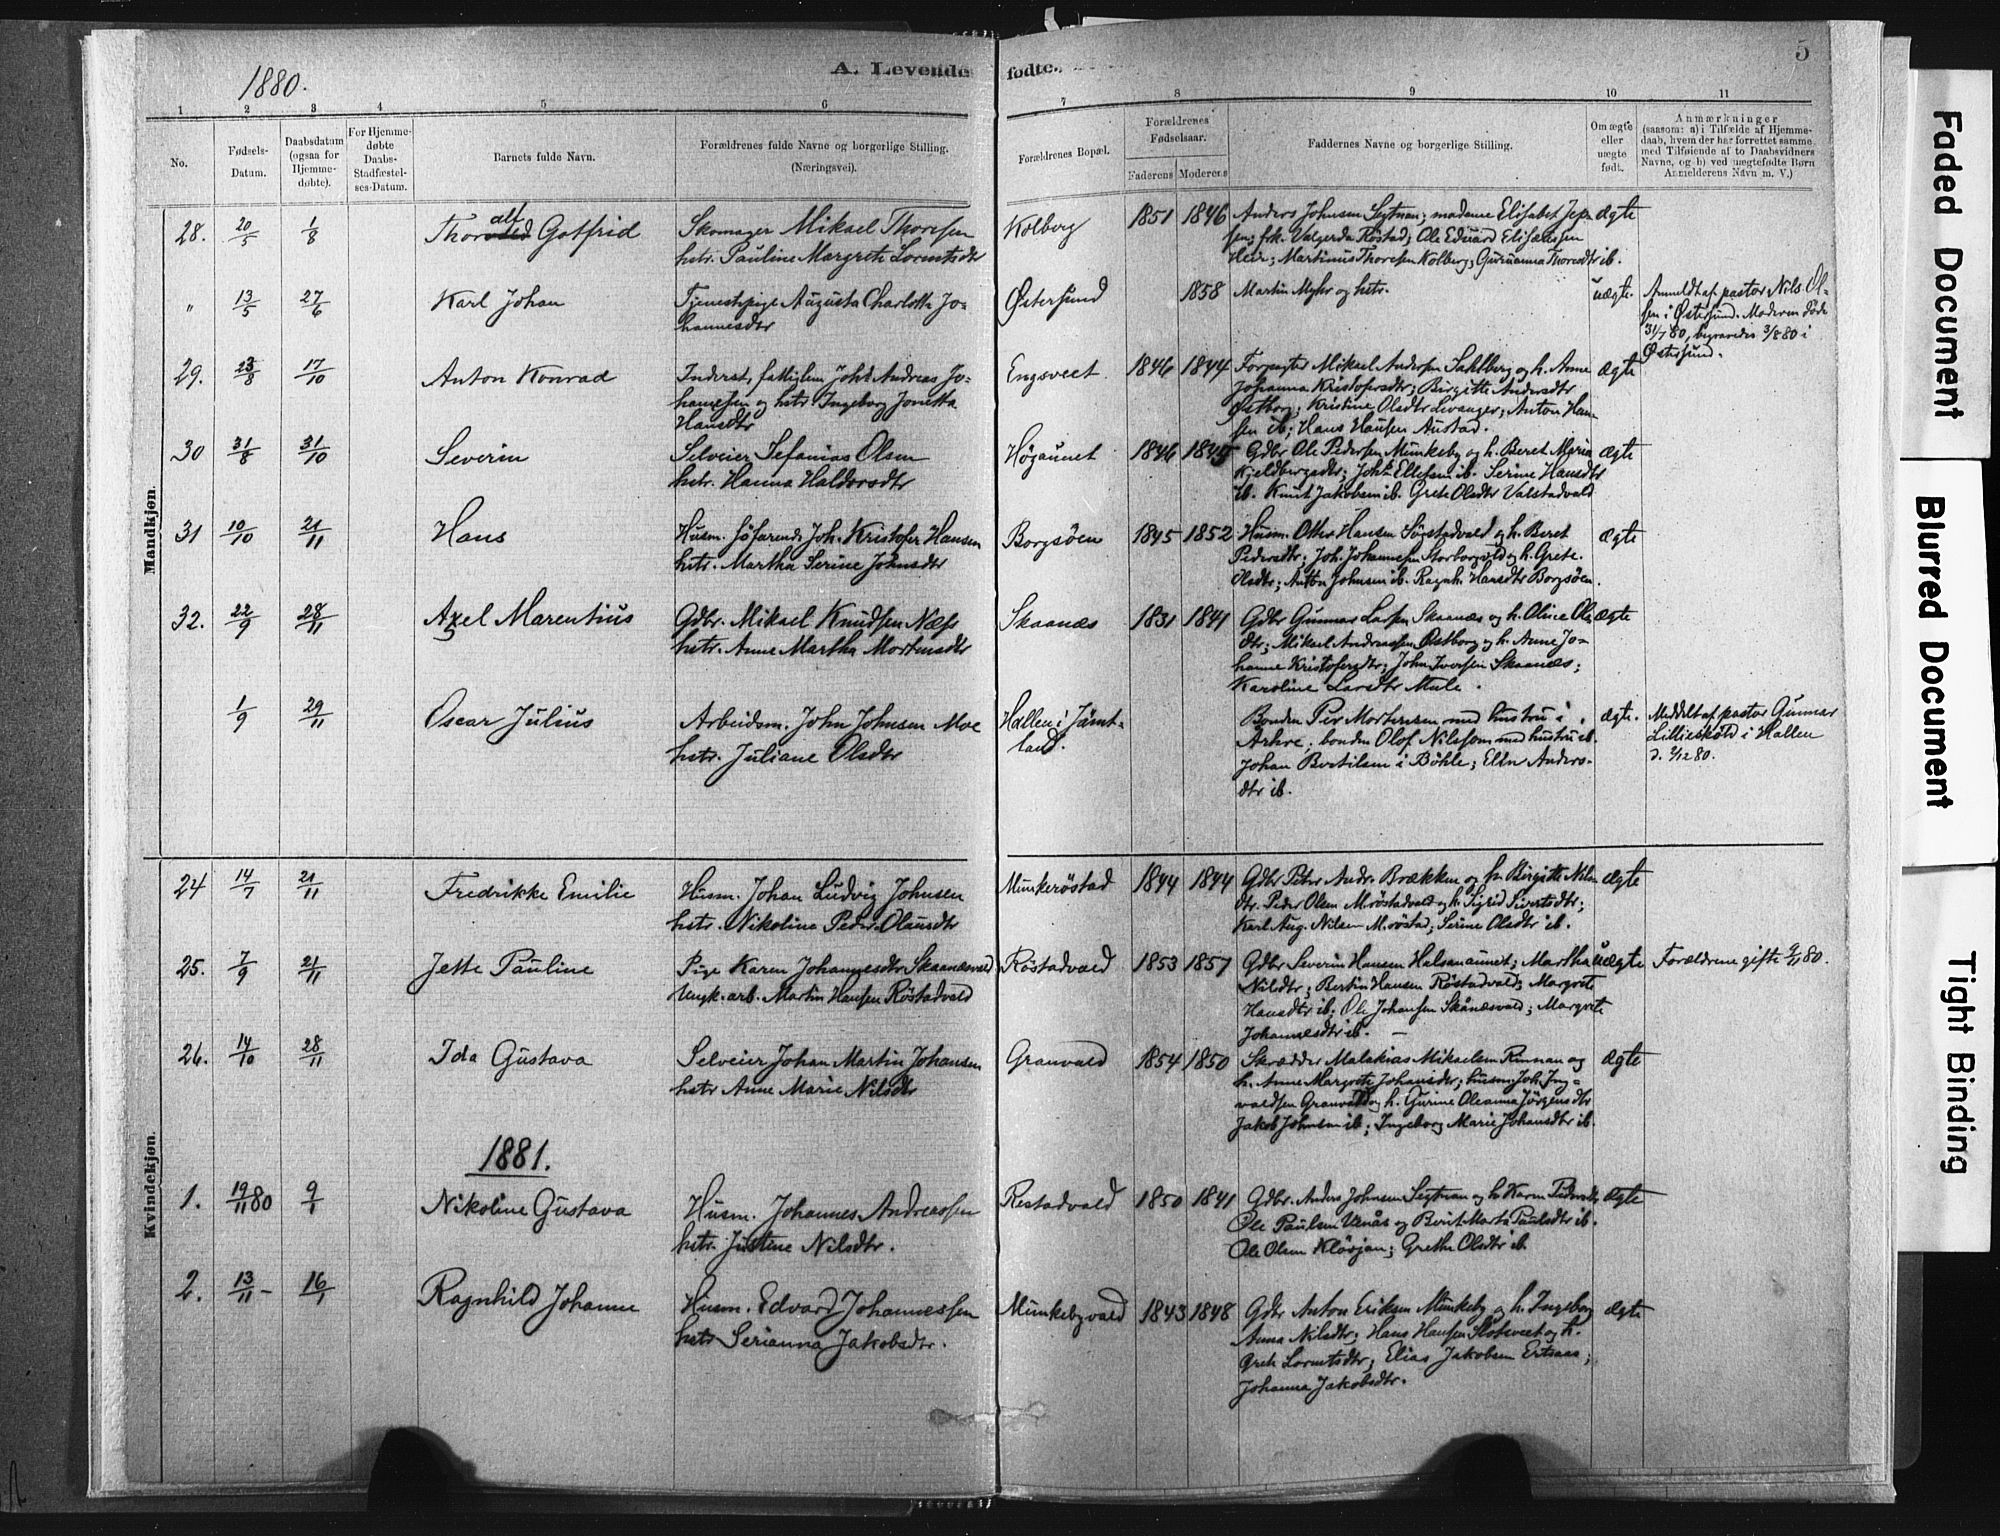 1880.
A. Levende
fødte.
5
1 2 3 4 5 6
7 8 9 10 11
No.
Fødsels-
Datum.
Daabsdatum
(ogsaa for
Hjemme-
døbte).
For Hjemme-
døbte
Daabs-
Stadfæstel-
ses-Datum.
Barnets fulde Navn.
Forældrenes fulde Navne og borgerlige Stilling.
(Næringsvei).
Forældrenes Bopæl.
Forældrenes
Fødselsaar.
Faderens Moderens
Faddernes Navne og borgerlige Stilling.
Om ægte
eller
uægte
født.
Anmærkninger
(saasom: a) i Tilfælde af Hjemme-
daab, hvem der har forrettet samme,
med Tilføiende af to Daabsvidners
Navne, og b) ved uegtefødte Børn
Anmelderens Navn m. V.)
Mandkjøn.
28. 20/5 1/8
alf
Gotfrid
Skomager Mikael Thoresen
hstr. Pauline Margrete Lorntsdtr
Kolberg
1851 1846
Anders Johnsen Segtnan; madame Elisabet Jep-
sen; frk. Valgerda Røstad; Ole Edvard Elisæussen
Heir; Martinus Thoresen Kolberg; Gurianna Thoresdtr ib.
ægte
" 13/5 27/6
Karl Johan
Tjenestepige Augusta Charlotte Jo-
hannesdtr
Østersund
1858
Martin Myhr og hstr.
uægte.
Anmeldt af pastor Nils Ol-
sen i Østersund. Moderen døde
31/7 80, begravedes 3/8 80 i
Østersund.
29. 23/8 17/10
Anton Konrad
Inderst, fattiglem Johs Andreas Jo-
hannessen og hstr Ingeborg Jonetta
Hansdtr
Engsveet
1846 1844
Forpagter Mikael Andersen Sahlberg og h. Anne
Johanna Kristofersdtr; Birgitte Andersdtr
Østborg; Kristine Olsdtr Levanger; Anton Han-
sen ib; Hans Hansen Austad.
ægte
30 31/8 31/10
Severin
Selveier Sefanias Olsen
hstr. Hanna Haldorsdtr
Høgaunet
1846 1845
Gdbr Ole Pedersen Munkeby og h. Beret Maria
Kjeldbergsdtr; Johs Ellefsen ib. Serine Hansdtr
ib. Knut Jakobsen ib. Grete Olsdtr Valstadvald
ægte
31 10/10 21/11
Hans
Husm. søfarende Joh. Kristofer Hansen
hstr. Martha Serine Johnsdtr
Borgsöen
1845 1852
Husm. Otter Hansen Sørstadvald og h. Beret
Pedersdtr; Joh. Johannesen Storborgvald og h. Grete
Olsdtr; Anton Johnsen ib. Ragnh. Hansdtr Borgsöen.
ægte
32. 22/9 28/11
Axel Marentius
Gdbr. Mikael Knudsen Næss
hstr. Anne Martha Mortensdtr
Skaanæs
1831 1841
Gdbr Gunnar Larsen Skaanæs og h. Oline Ols-
dtr; Mikael Andreassen Østborg og h. Anne Jo-
hanne Kristofersdtr; John Iversen Skaanæs;
Karoline Larsdtr Mule.
ægte
1/9 29/11
Oscar Julius
Arbeidsm. John Johnsen Moe
hstr. Juliane Olsdtr
Hallen i Jämt-
land.
Bonden Per Mortensen med hustru i
Arhre; bonden Olof Nilsson med hustru ib.
Johan Bertilsen i Böhle; Elen Anders-
dtr ib.
ægte.
Meddelt af pastor Gunnar
Lilliesköld i Hallen
d. 2/12 80.
Kvindekjøn.
24 14/7 21/11
Fredrikke Emilie
Husm. Johan Ludvig Johnsen
hstr. Nikoline Peder-Olausdtr
Munkeröstad
1844 1844
Gdbr Peter Andr. Brækken og h. Birgitte Nils-
dtr. Peder Olsen M.röstadvald og h. Sigrid Sivertsdtr;
Karl Aug. Nilsen M.röstad; Serine Olsdtr ib.
ægte
25. 7/9 21/11
Jette Pauline
Pige Karen Johannesdtr Skaanæsvald
Ungk. arb. Martin Hansen Röstadvald
Röstadvald
1853 1857
Gdbr Severin Hansen Halsanaunet; Martha
Nilsdtr; Bertin Hansen Röstadvald; Margrete
Hansdtr ib; Ole Johansen Skånæsvald; Margrete
Johannesdtr ib. —
uægte
Forældrene gifte 9/11 80.
26. 14/10 28/11
Ida Gustava
Selveier Johan Martin Johansen
hstr Anne Marie Nilsdtr
Granvald
1854 1850
Skrædder Malakias Mikaelsen Rinnan og
h. Anne Margrete Johansdtr; husm. Joh. Ing-
valdsen Granvald og h. Gurine Oleanna Jörgensdtr
Jakob Johnsen ib; Ingeborg Marie Johansdtr ib.
ægte
1881.
1. 19/11 80 9/1
Nikoline Gustava
Husm. Johannes Andreassen
hstr. Justine Nilsdtr.
Restadvald
1850 1841
Gdbr. Anders Johnsen Segtnan og h. Karen Pedersdtr
Ole Paulsen Venås og Berit Marta Paulsdtr ib.
Ole Olsen Klövjan; Grethe Olsdtr ib.
ægte
2. 13/11 - 16/1
Ragnhild Johanne
Husm. Edvard Johannessen
hstr Serianna Jakobsdtr.
Munkebyvald
1843 1848
Gdbr Anton Eriksen Munkeby og h. Ingeborg
Anna Nilsdtr; Hans Hansen Slotsveet og h.
Grete Lorntsdtr; Elias Jakobsen Ertsaas;
Johanna Jakobsdtr.
ægte
Faded Document
Blurred Document
Tight Binding